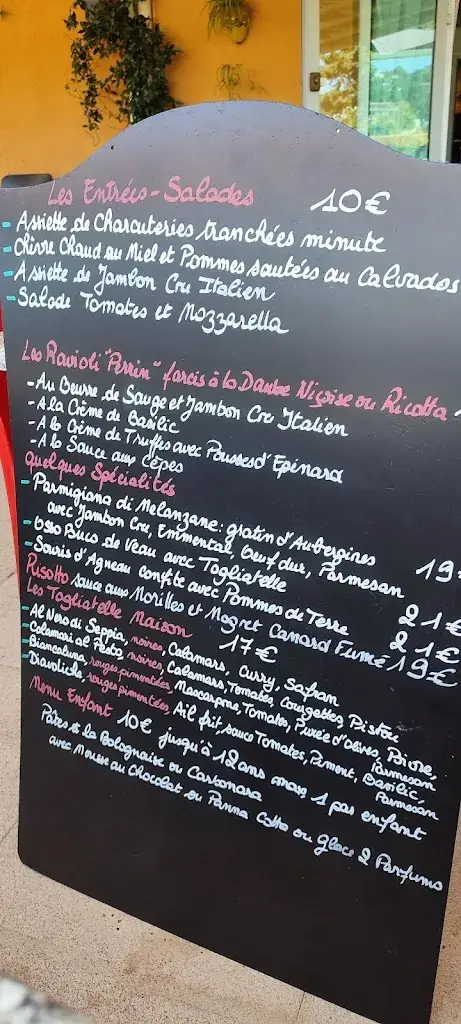 Les Entrées-Salades 10€
- Assiette de Charcuteries tranchées minute
- Chèvre Chaud au Miel et Pommes sautées au Calvados
- Assiette de Jambon Cru Italien
- Salade Tomates et Mozzarella
Les Ravioli "Perrin" farcis à la Daube Niçoise ou Ricotta
- Au Beurre de Sauge et Jambon Cru Italien
- A la Crème de Basilic
- A la Crème de Truffes avec Pousses d'Epinard
- A la Sauce aux Cèpes
Quelques Spécialités
- Parmigiana di Melanzane: gratin d'Aubergines
avec Jambon Cru, Emmental, Oeuf dur, Parmesan 19€
- Osso Buco de Veau avec Tagliatelle 21€
- Souris d'Agneau confite avec Pommes de Terre 21€
Risotto sauce aux Morilles et Magret Canard Fumé 19€
Les Tagliatelle Maison 17€
- Al Nero di Seppia, noires, Calamars, Curry, Safran
- Calamari al Pesto, noires, Calamars, Tomates, Courgettes, Pistou
- Biancaluna, rouges pimentées, Mascarpone, Tomates, Purée d'olives, Poivre, Parmesan
- Diavoliche, rouges pimentées, Ail frit, sauce Tomates, Piment, Basilic, Parmesan
Menu Enfant 10€ jusqu'à 12 ans max, 1 par enfant
Pâtes à la Bolognaise ou Carbonara
avec Mousse au Chocolat ou Panna Cotta ou glace 2 Parfums